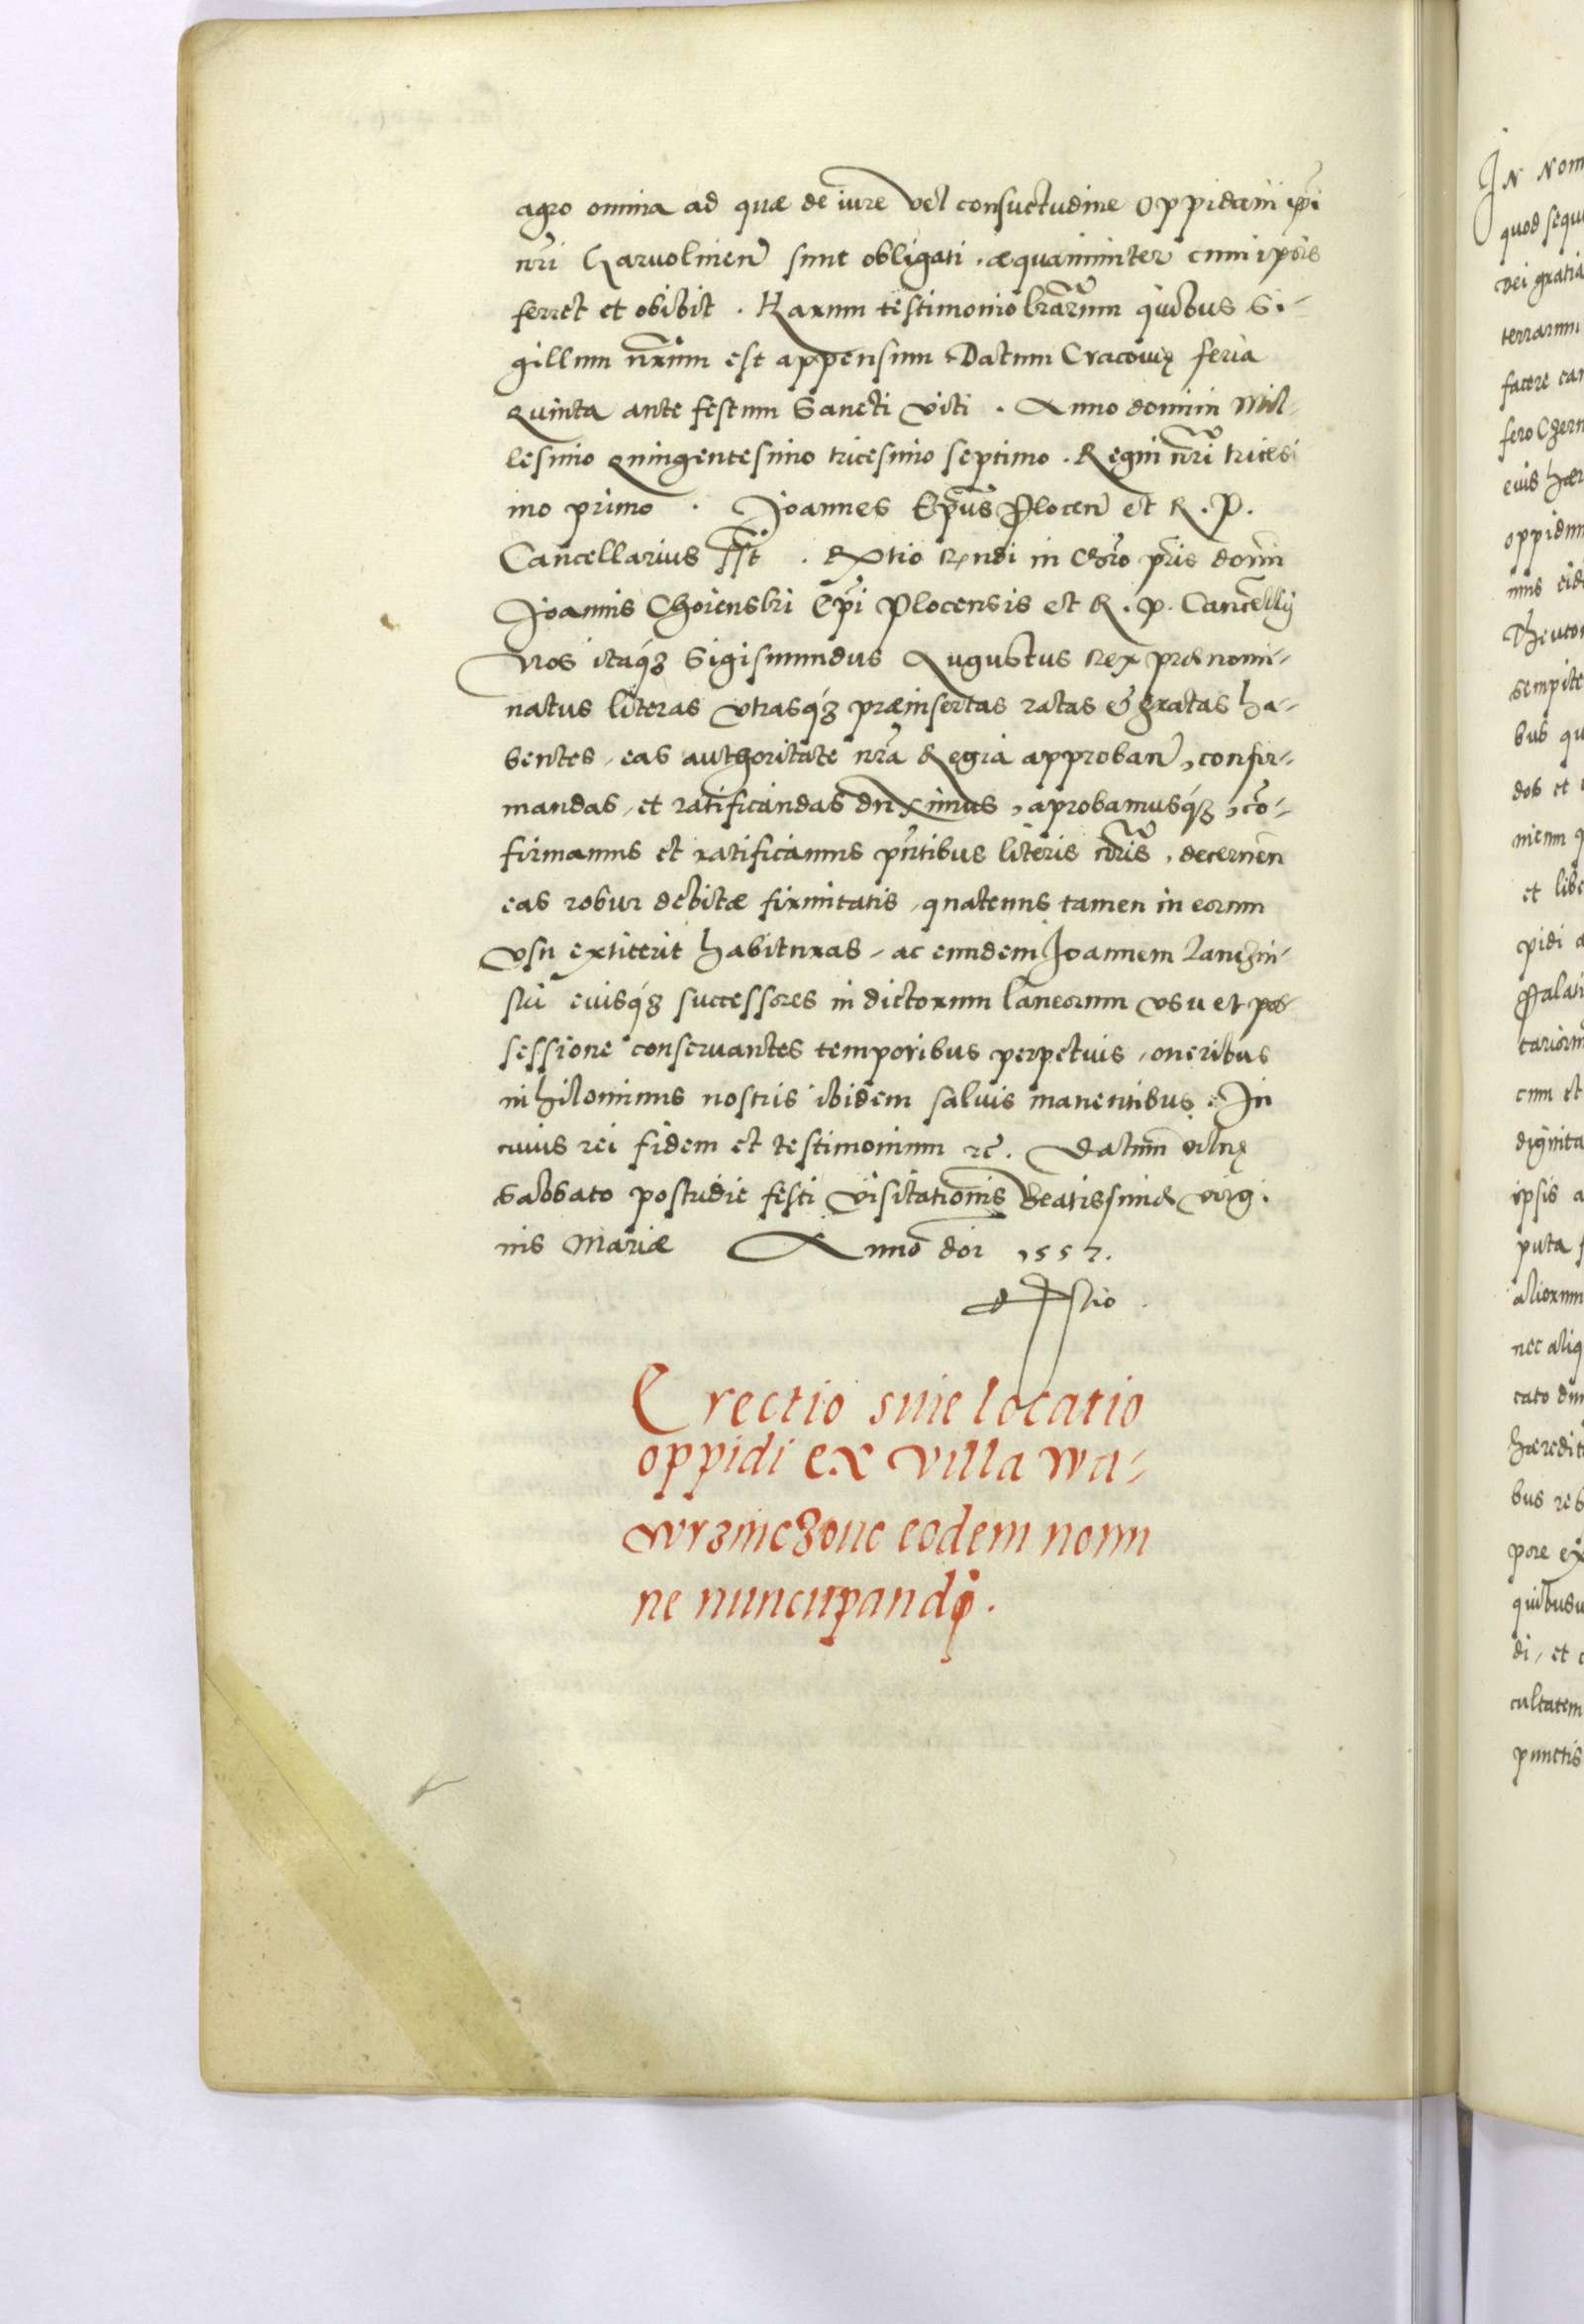 agro omnia ad quæ de iure vel consuetudine oppidani ipsi
nri Garuolinen sunt obligati. æquanimiter cum ipsis
ferret et obibit. Harum testimonio lrarum quibus Si-
gillum nrum est appensum. Datum Cracouię feria
quinta ante festum Sancti Viti. Anno domini Mil-
lesimo quingentesimo tricesimo septimo. Regni nri tricesi
mo primo. Joannes Epus Plocen et R. P.
Cancellarius sst. Rxtio Rndi in Chro pris domi
Joannis Choienski Epi Plocensis et R. p. Cancellÿ
Nos itaq3 Sigismundus Augustus Rex prænomi-
natus literas vtrasq3 præinsertas ratas & gratas ha-
bentes, eas authoritate nra Regia approban, confir-
mandas, et ratificandas duximus, aprobamusq3, co-
firmamus et ratificamus pntibus literis nris, decernen
eas robur debitæ firmitatis, quatenus tamen in eorum
vsu extiterit habituras, ac eundem Joannem
eiusq3 successores in dictorum laneorum vsu et pos-
sessione conseruantes temporibus perpetuis, oneribus
nihilominus nostris ibidem saluis manentibus. In
cuius rei fidem et testimonium rc. Datum vilnę
Sabbato postridie festi Visitationis Beatissimæ virgi-
nis Mariæ Anno doi 1557.
Erectio siue locatio
oppidi ex villa Wa-
wrzinczouc eodem nomi
ne nuncupandi.
In Nom
quod sequ
Dei gratia
terrarum
facere
fero Czern
eius hær
oppidum
Theuton
sempite
bus qu
dos et
et libe
pidi a
Palati
cum et
dignita
ipsis a
puta f
aliorum
nec aliq
cato
hæredit
bus reb
pore ex
quibusu
di, et c
cultatem
punctis